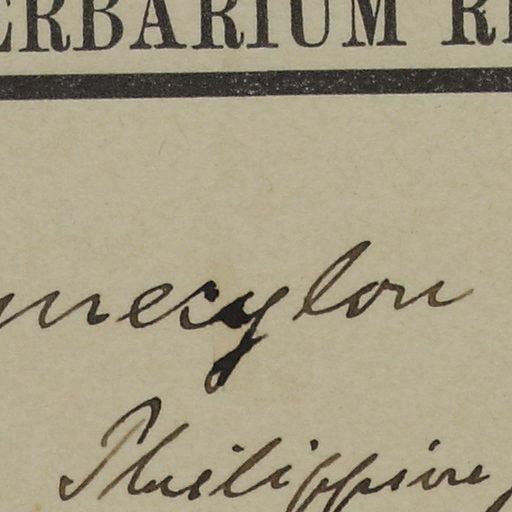 ERBARIUM R
mecylon
Philippine